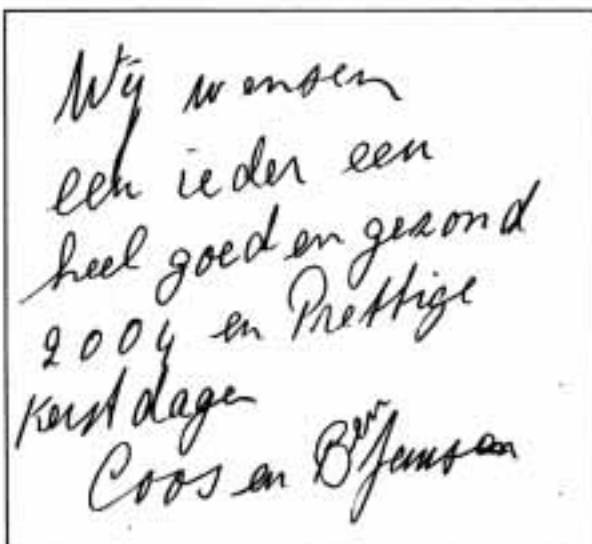 Wij wensen
een ieder een
heel goed en gezond
2004 en Prettige
Kerstdagen
Coos en Ben Jansen